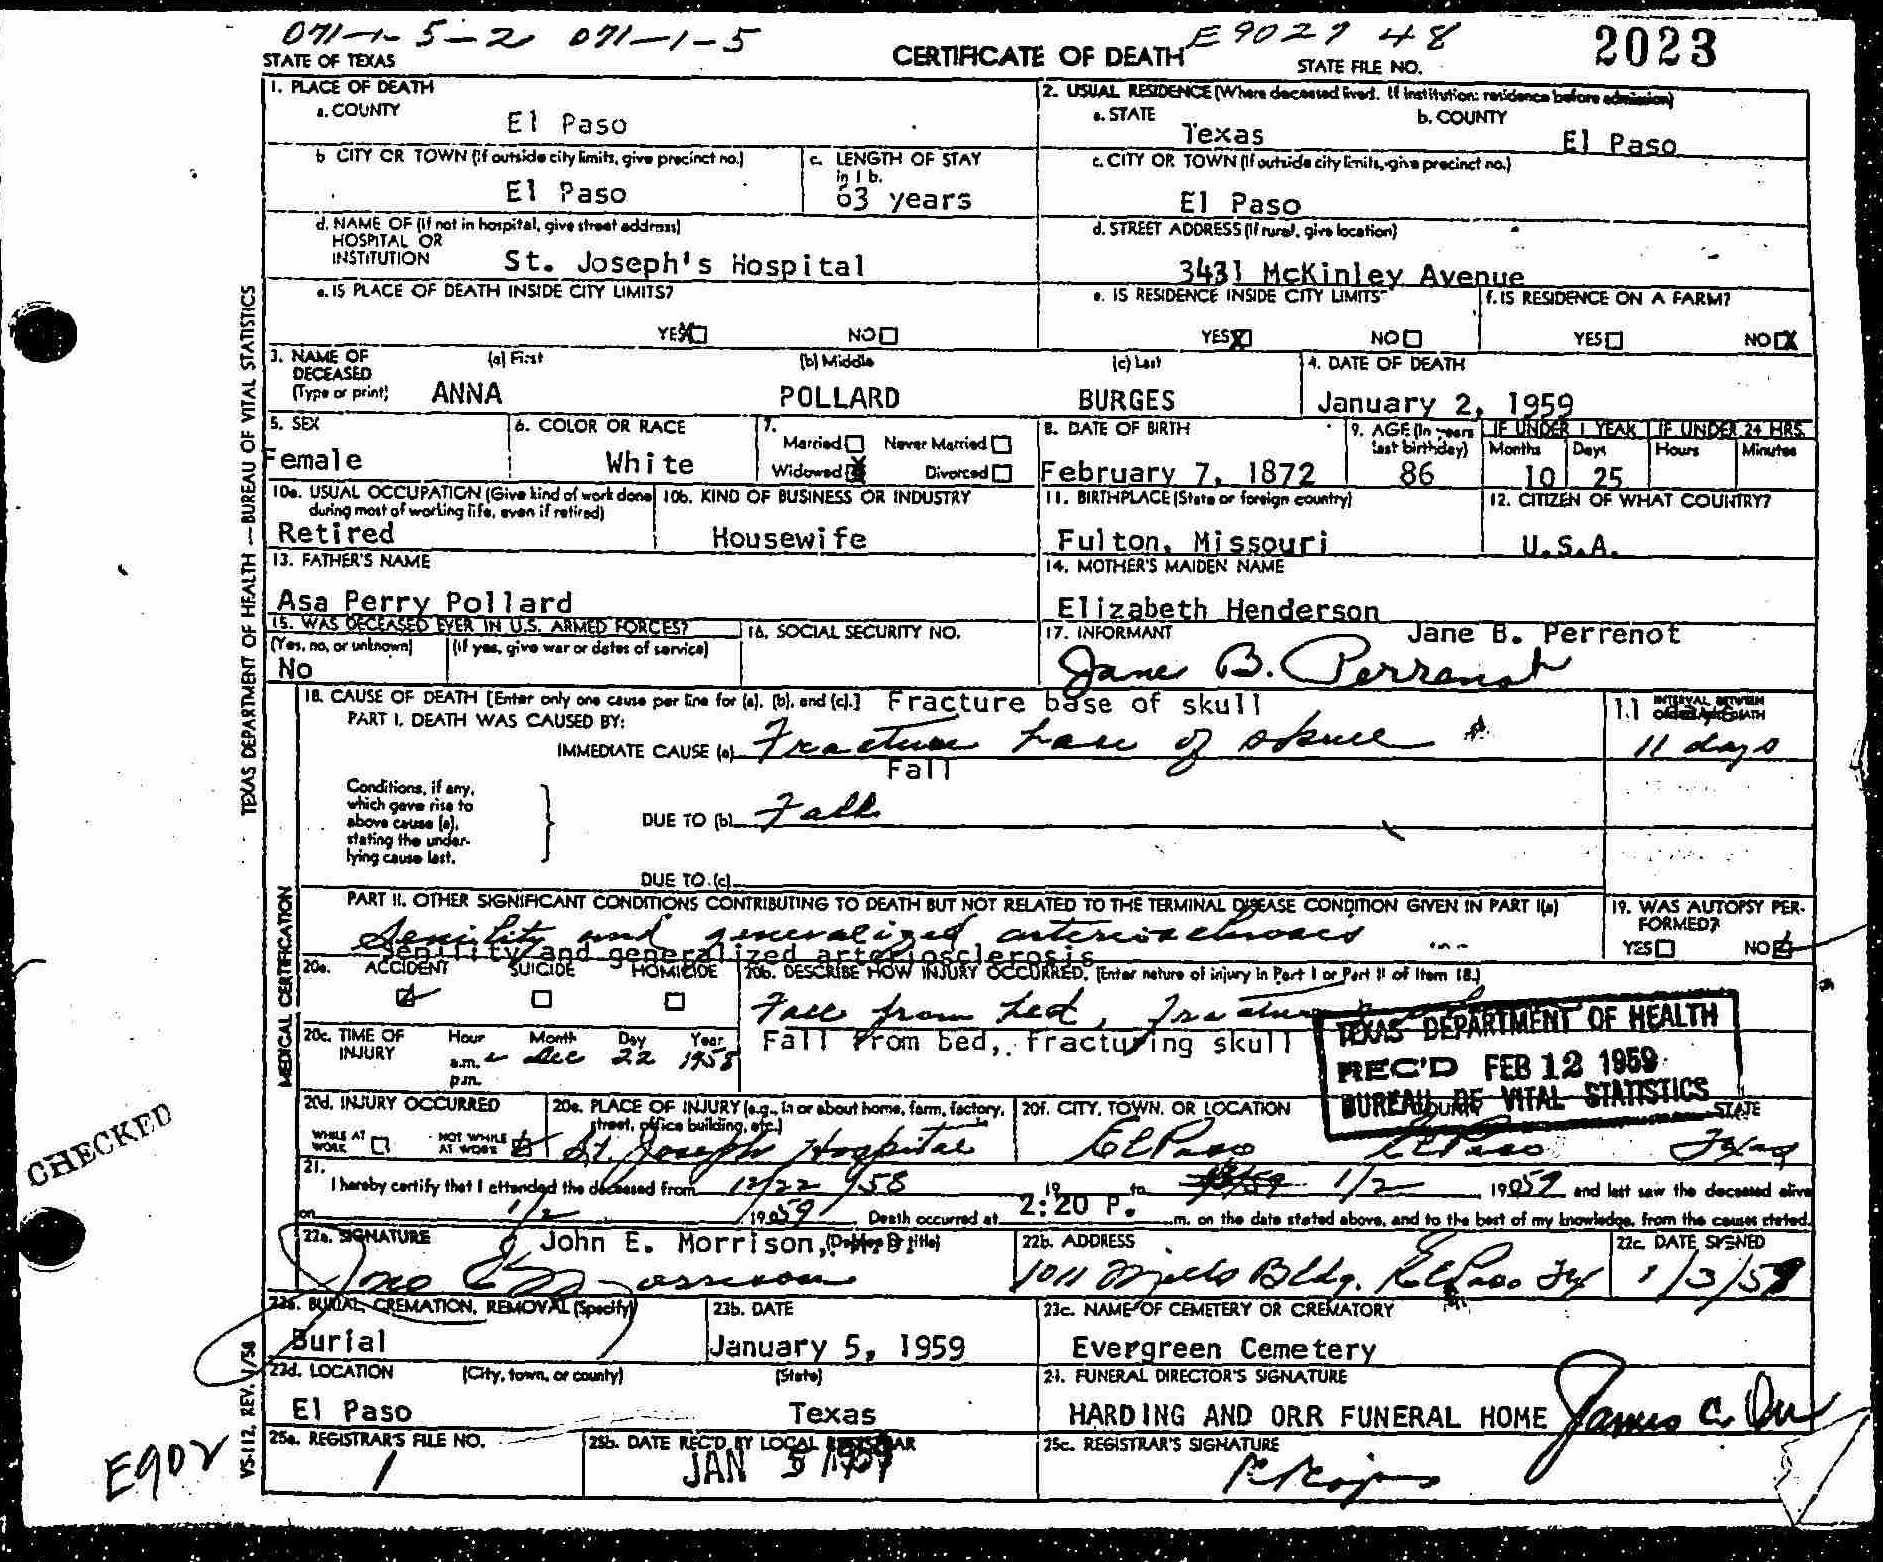 071-1-5-2 071-1-5
STATE OF TEXAS
CERTIFICATE OF DEATH
E9027 48
STATE FILE NO.
2023
1. PLACE OF DEATH
a. COUNTY
El Paso
2. USUAL RESIDENCE (Where deceased lived. If institution: residence before admission)
a. STATE
Texas
b. COUNTY
El Paso
b CITY OR TOWN (If outside city limits, give precinct no.)
El Paso
c. LENGTH OF STAY
in 1 b.
63 years
c. CITY OR TOWN (If outside city limits, give precinct no.)
El Paso
d. NAME OF (If not in hospital, give street address)
HOSPITAL OR
INSTITUTION
St. Joseph's Hospital
d. STREET ADDRESS (If rural, give location)
3431 McKinley Avenue
e. IS PLACE OF DEATH INSIDE CITY LIMITS?
YES NO
e. IS RESIDENCE INSIDE CITY LIMITS
YES NO
f. IS RESIDENCE ON A FARM?
YES NO
3. NAME OF
DECEASED
(Type or print)
(a) First
ANNA
(b) Middle
POLLARD
(c) Last
BURGES
4. DATE OF DEATH
January 2, 1959
5. SEX
Female
6. COLOR OR RACE
White
7.
Married Never Married
Widowed Divorced
8. DATE OF BIRTH
February 7, 1872
9. AGE (In years
last birthday)
86
IF UNDER 1 YEAR
Months Days
10 25
IF UNDER 24 HRS.
Hours Minutes
10a. USUAL OCCUPATION (Give kind of work done
during most of working life, even if retired)
Retired
10b. KIND OF BUSINESS OR INDUSTRY
Housewife
11. BIRTHPLACE (State or foreign country)
Fulton, Missouri
12. CITIZEN OF WHAT COUNTRY?
U.S.A.
13. FATHER'S NAME
Asa Perry Pollard
14. MOTHER'S MAIDEN NAME
Elizabeth Henderson
15. WAS DECEASED EVER IN U.S. ARMED FORCES?
(Yes, no, or unknown)
No
(If yes, give war or dates of service)
16. SOCIAL SECURITY NO.
17. INFORMANT
Jane B. Perrenot
Jane B. Perrenot
18. CAUSE OF DEATH [Enter only one cause per line for (a), (b), and (c).]
Fracture base of skull
PART I. DEATH WAS CAUSED BY:
IMMEDIATE CAUSE (a) Fracture base of skull
INTERVAL BETWEEN
11
11 days
Conditions, if any,
which gave rise to
above cause (a),
stating the under-
lying cause last.
Fall
DUE TO (b) Fall
DUE TO (c)
PART II. OTHER SIGNIFICANT CONDITIONS CONTRIBUTING TO DEATH BUT NOT RELATED TO THE TERMINAL DISEASE CONDITION GIVEN IN PART I(a)
Senility and generalized arteriosclerosis
Senility and generalized arteriosclerosis
19. WAS AUTOPSY PER-
FORMED?
YES NO
20a. ACCIDENT SUICIDE HOMICIDE
20b. DESCRIBE HOW INJURY OCCURRED. (Enter nature of injury in Part I or Part II of Item 18.)
Fall from bed, fracturing
Fall from bed, fracturing skull
20c. TIME OF
INJURY
Hour Month Day Year
a.m. Dec 22 1958
p.m.
TEXAS DEPARTMENT OF HEALTH
REC'D FEB 12 1959
BUREAU OF VITAL STATISTICS
20d. INJURY OCCURRED
WHILE AT
WORK
NOT WHILE
AT WORK
20e. PLACE OF INJURY (e.g., in or about home, farm, factory,
street, office building, etc.)
St. Joseph Hospital
20f. CITY, TOWN, OR LOCATION
El Paso
COUNTY
El Paso
STATE
Texas
21.
I hereby certify that I attended the deceased from 12/22/58 19 to 1/2, 1959 and last saw the deceased alive
on 1/2 1959 Death occurred at 2:20 P. m. on the date stated above, and to the best of my knowledge, from the causes stated.
22a. SIGNATURE
John E. Morrison, (Degree or title)
Jno E Morrison
22b. ADDRESS
1011 Mills Bldg. El Paso Tex
22c. DATE SIGNED
1/3/59
23a. BURIAL, CREMATION, REMOVAL (Specify)
Burial
23b. DATE
January 5, 1959
23c. NAME OF CEMETERY OR CREMATORY
Evergreen Cemetery
23d. LOCATION (City, town, or county) (State)
El Paso Texas
24. FUNERAL DIRECTOR'S SIGNATURE
HARDING AND ORR FUNERAL HOME James C. Orr
25a. REGISTRAR'S FILE NO.
1
25b. DATE REC'D BY LOCAL REGISTRAR
JAN 5 1959
25c. REGISTRAR'S SIGNATURE
TEXAS DEPARTMENT OF HEALTH — BUREAU OF VITAL STATISTICS
MEDICAL CERTIFICATION
VS-112, REV. 1/58
CHECKED
E902